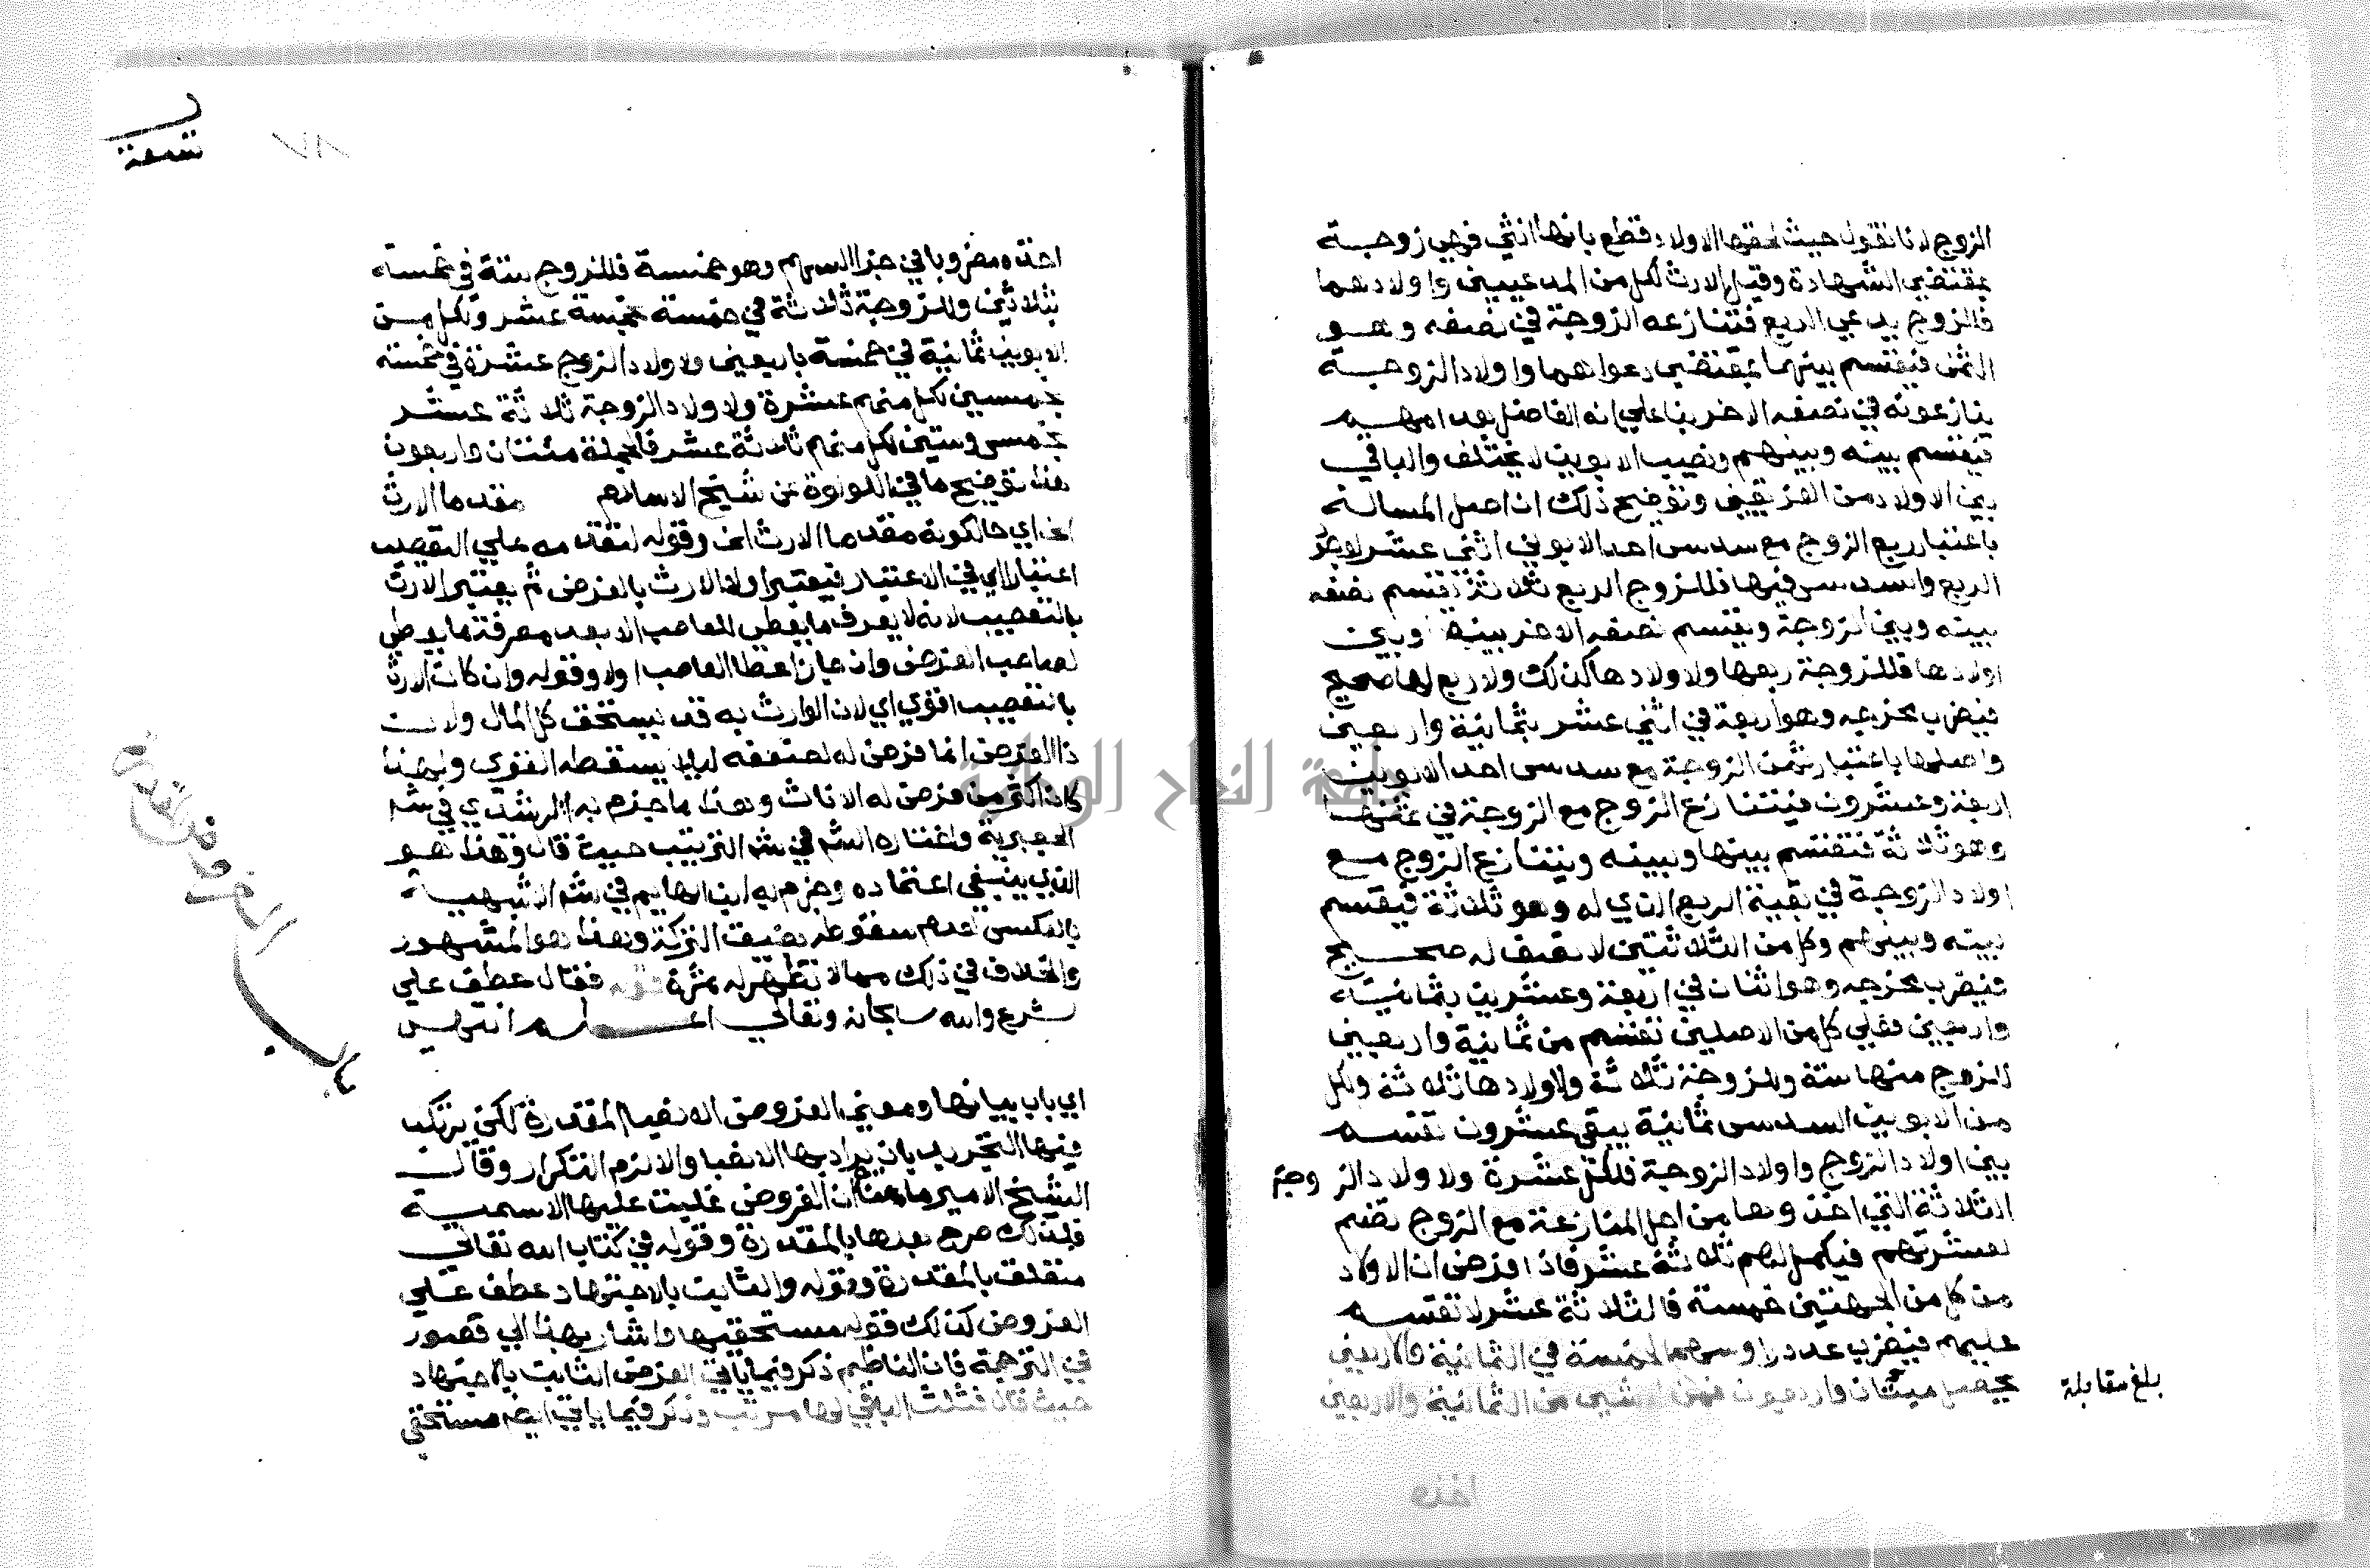 الزوج لانا نقول حيث لحقها الاولاد قطع بانها انثي فهي زوجة
بمقتضي الشهادة وقيل الارث لكل من المدعيين واولادهما
فالزوج يدعي الربع فتنازعه الزوجة في نصفه وهو
الثمن فيقتسم بينهما بمقتضي دعواهما واولاد الزوجة
ينازعونه في نصفه الاخر بنا علي انه الفاضل بعد امهم
فيقتسم بينه وبينهم ونصيب الابوين لا يختلف والباقي
بين الاولاد من الفريقين وتوضيح ذلك ان اصل المسالة
باعتبار ربع الزوج مع سدس احد الابوين اثني عشر لوجود
الربع والسدس فيها فللزوج الربع ثلاثة يقتسم نصفه
بينه وبين الزوجة ويقتسم نصفه الاخر بينه وبين
اولادها فللزوجة ربعها ولاولادها كذلك ولا ربع لها صحيح
فيضرب مخرجه وهو اربعة في اثني عشر بثمانية واربعين
واصلها باعتبار ثمن الزوجة مع سدس احد الابوين
اربعة وعشرون فيتنازع الزوج مع الزوجة في ثمنها
وهو ثلاثة فتقتسم بينها وبينه ويتنازع الزوج مع
اولاد الزوجة في بقية الربع الذي له وهو ثلاثة فيقتسم
بينه وبينهم وكل من الثلاثتين لا نصف له صحيح
فيضرب مخرجه وهو اثنان في اربعة وعشرين بثمانية
واربعين فعلي كل من الاصلين تقتسم من ثمانية واربعين
للزوج منها ستة وللزوجة ثلاثة ولاولادها ثلاثة ولكل
من الابوين السدس ثمانية يبقي عشرون تقسم
بين اولاد الزوج واولاد الزوجة فلكل عشرة ولاولاد الزوجة
الثلاثة التي اخذوها من اجل المنازعة مع الزوج تضم
لعشرتهم فيكمل لهم ثلاثة عشر فاذا فرض ان الاولاد
من كل من الجهتين خمسة فالثلاثة عشر لا تقسم
عليهم فيضرب عدد رؤسهم الخمسة في الثمانية والاربعين
يحصل ميتان واربعون فمن له شيي من الثمانية والاربعين
بلغ مقابلة
اخذه
١٧
اخذه مضروبا في جزا السهم وهو خمسة فللزوج ستة في خمسة
بثلاثين وللزوجة ثلاثة في خمسة بخمسة عشر ولكل من
الابوين ثمانية في خمسة باربعين ولاولاد الزوج عشرة في خمسة
بخمسين لكل منهم عشرة ولاولاد الزوجة ثلاثة عشر
بخمس وستين لكل منهم ثلاثة عشر فالجملة مئتان واربعون
هذا توضيح ما في اللولوة عن شيخ الاسلام مقدما الارث
الخ اي حالكونه مقدما الارث الخ وقوله لتقدمه علي التعصيب
اعتبارا اي في الاعتبار فيعتبر اولا الارث بالفرض ثم يعتبر الارث
بالتعصيب لانه لا يعرف ما يعطي للعاصب الا بعد معرفة ما يعطي
لصاحب الفرض وان جاز اعطا العاصب اولا وقوله وان كان الارث
بالتعصيب اقوي اي لان الوارث به قد يستحق كل المال ولان
ذا الفرض انما فرض له لضعفه ليلا يسقطه القوي ولهذا
كان اكثر من فرض له الاناث وهذا ما جزم به الرشيدي في شر
الجعبرية واختاره الشم في شر الترتيب حيث قال وهذا هو
الذي ينبغي اعتماده وجزم به ابن الهايم في شر
بالعكس لعدم سقوطه بضيق التركة وهذا هو المشهور
والخلاف في ذلك مما لا تظهر له ثمرة قوله فقال عطف علي
شرع والله سبحانه وتعالي اعلم انتهي
باب الفروض المقدرة
اي باب بيانها ومعني الفروض الانصبا المقدرة لكن يرتكب
فيها التجريد بان يراد بها الانصبا والا لزم التكرار وقال
الشيخ الامير ما معناه ان الفروض غلبت عليها الاسمية
فلذلك صرح بعدها بالمقدرة وقوله في كتاب الله تعالي
متعلق بالمقدرة وقوله والثابت بالاجتهاد عطف علي
الفروض كذلك قوله مستحقيها واشار بهذا الي قصور
في الترجمة فان الناظم ذكر فيما ياتي الفرض الثابت بالاجتهاد
حيث قال فثلث الباقي لها مرتب وذكر فيما ياتي ايضا مستحقي